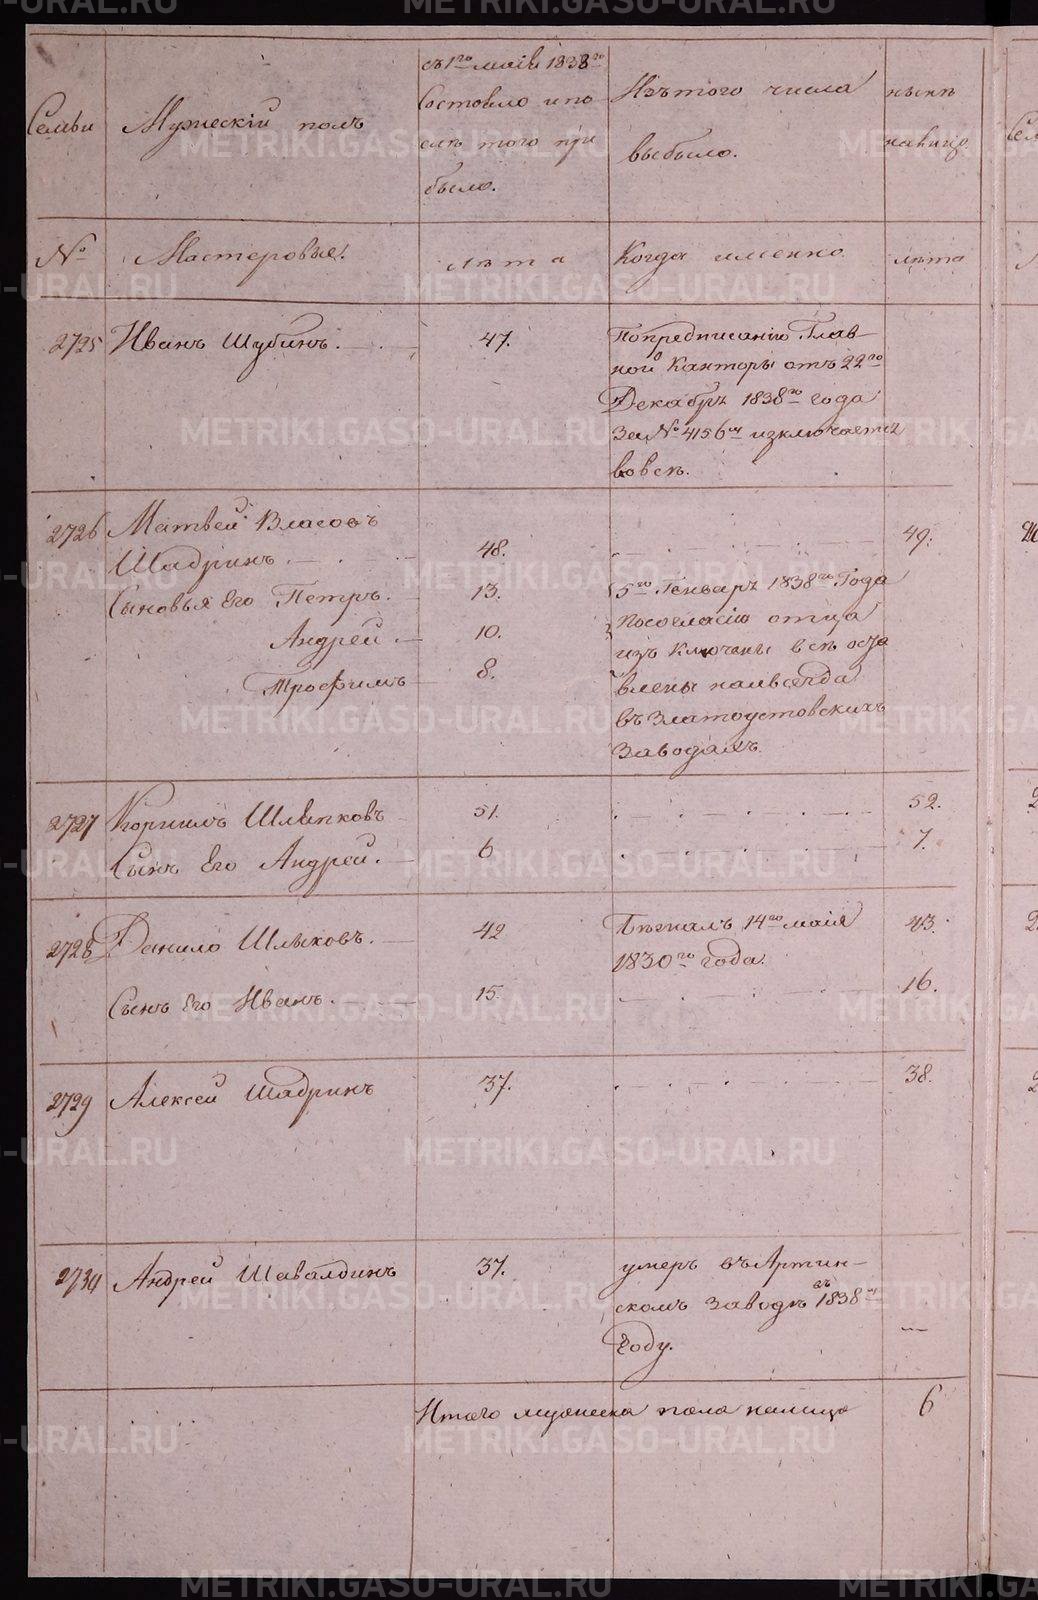 METRIKI.GASO-URAL.RU
Семьи
Мужескій полъ
съ 1го маія 1838го
Состояло и по
слѣ того при
было.
Изъ того числа
выбыло.
нынѣ
налицо
№
Мастеровые.
лѣта
Когда именно
лѣта
2725 Иванъ Шубинъ. 47.
По предписанію Глав-
ной Канторы отъ 22го
Декабря 1838го года
За № 4156м изключается
вовсе.
2726 Матвей Власовъ
Шадринъ. 48. 49.
Сыновья Его Петръ. 13.
Андрей 10.
Трофимъ 8.
5го Генваря 1838го Года
По согласію отца
изъ Ключены все оста
влены навсегда
въ Златоустовскихъ
Заводахъ
2727 Корнилъ Шляпковъ 51. 52.
Сынъ Его Андрей. 6 7.
2728 Данило Шлыковъ. 42 43.
Бѣжалъ 14го маія
1830го года.
Сынъ Его Иванъ. 15. 16.
2729 Алексей Шадринъ 37. 38.
2730 Андрей Шавалдинъ 37.
умеръ въ Артин-
скомъ Заводѣ въ 1838м
Году.
Итого мужеска пола налицо 6